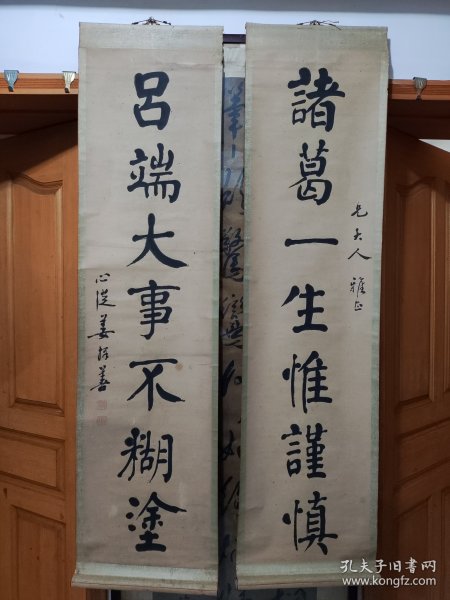 諸葛一生惟謹慎
兄大人 雅正
呂端大事不糊塗
孔夫子旧书网
www.kongfz.com